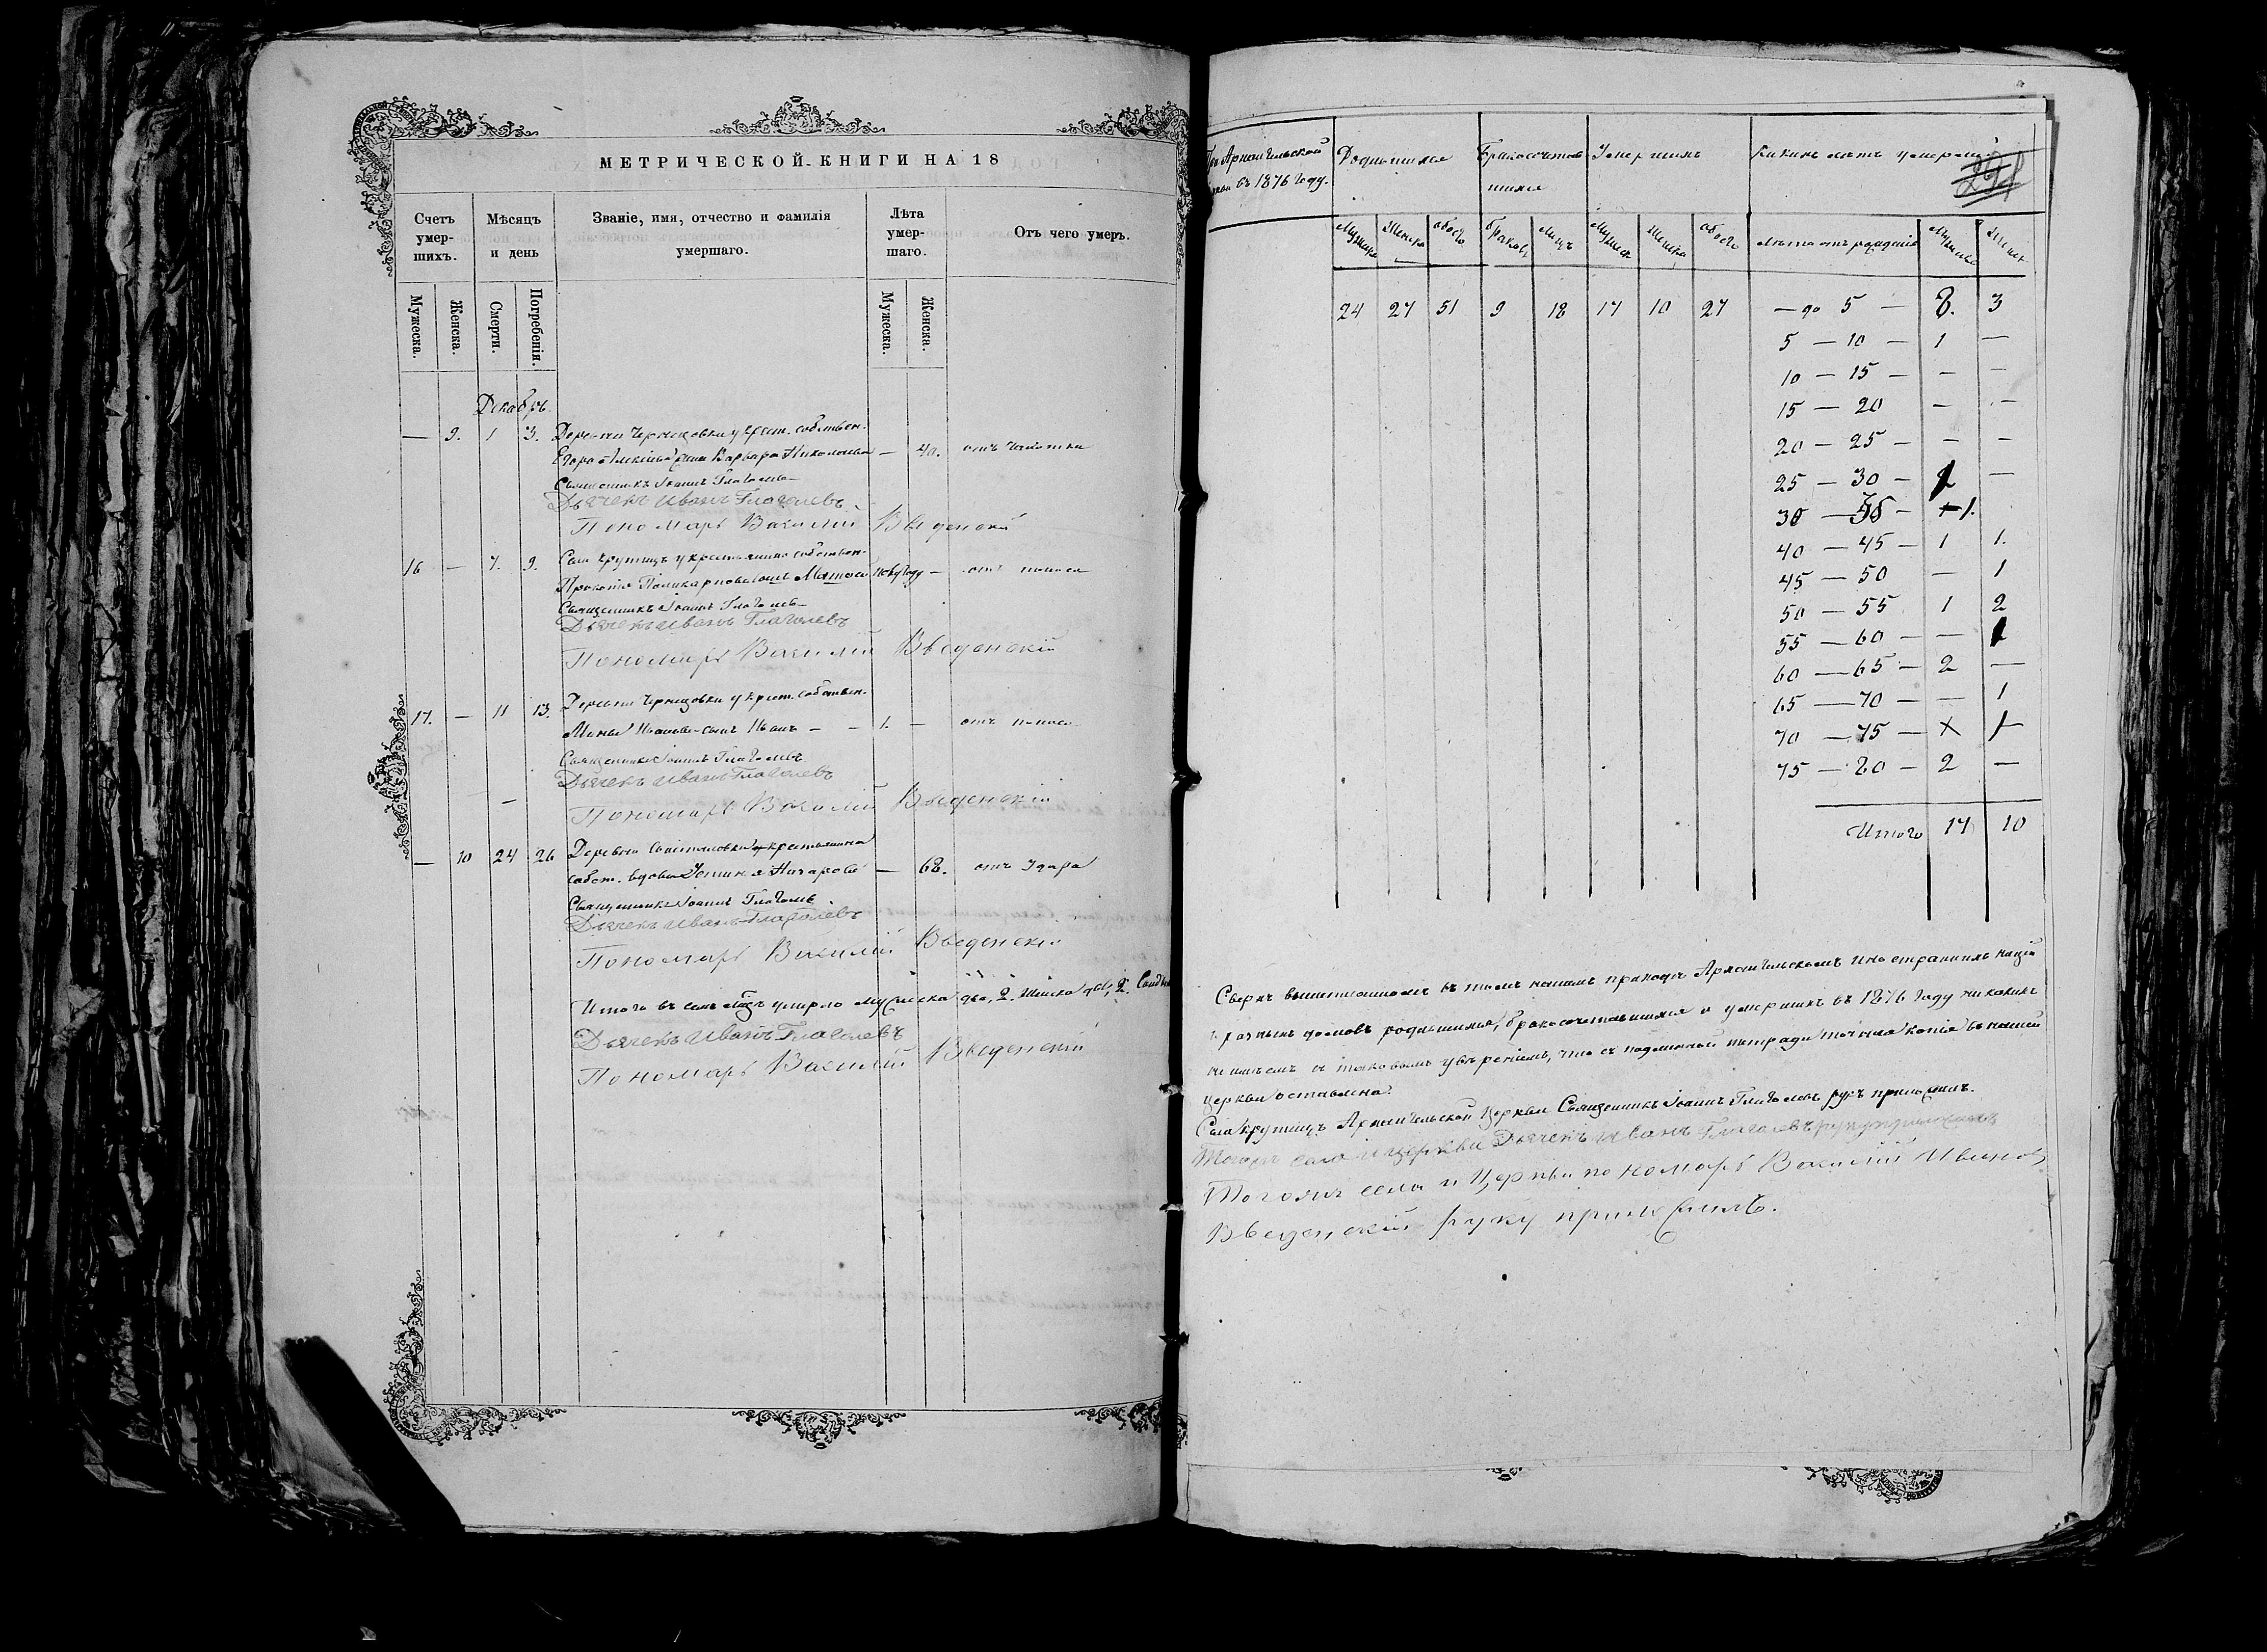 МЕТРИЧЕСКОЙ КНИГИ НА 18
Счетъ умер-шихъ.
Мѣсяцъ и день
Званіе, имя, отчество и фамилія умершаго.
Лѣта умер-шаго.
Отъ чего умеръ.
Мужеска. Женска. Смерти. Погребенія. Мужеска. Женска.
Декабрь
— 9. 1 3. Деревни крест. собствен.
жена Варвара Николаева — 40. отъ чахотки
Священникъ Іоаннъ Глаголевъ
Дьячекъ Иванъ Глаголевъ
Пономарь Василій Введенскій
16 — 7. 9. Села Крутицъ у крестьянина собствен.
Прокопія Поликарпова сынъ году — отъ поноса
Священникъ Іоаннъ Глаголевъ
Дьячекъ Иванъ Глаголевъ
Пономарь Василій Введенскій
17. — 11 13. Деревни у крест. собствен.
Иванова сынъ Иванъ — — 1. — отъ поноса
Священникъ Іоаннъ Глаголевъ
Дьячекъ Иванъ Глаголевъ
Пономарь Василій Введенскій
— 10 24 26 Деревни крестьянина
собст. вдова Устинья Назарова — 68. отъ удара
Священникъ Іоаннъ Глаголевъ
Дьячекъ Иванъ Глаголевъ
Пономарь Василій Введенскій
Итого въ семъ м-цѣ умерло мужеска два, 2. женска двѣ, 2.
Дьячекъ Иванъ Глаголевъ
Пономарь Василій Введенскій
Архангельской Родившихся Бракосочетав Умершихъ Какихъ лѣтъ умерли
въ 1876 году. шихся
291
Мужска Женска обоего браков. лицъ Мужеск Женска обоего лѣта отъ рожденія Мужеска Женск
24 27 51 9 18 17 10 27 — до 5 — 8. 3
5 — 10 — 1 —
10 — 15 — — —
15 — 20 — —
20 — 25 — — —
25 — 30 — —
40 — 45 — 1 1.
45 — 50 — 1
50 — 55 1 2
55 — 60 — — 1
60 — 65 — 2 —
65 — 70 — — 1
70 — 75 —
75 — 80 — 2 —
Итого 17 10
Сверхъ вышеписанныхъ въ нашемъ приходѣ Архангельскомъ иностранныхъ націй
и разныхъ домовъ родившихся, бракосочетавшихся и умершихъ въ 1876 году никакихъ
не имѣемъ съ таковымъ увѣреніемъ, что съ подлинной тетради точная копія въ нашей
церкви оставлена.
Села Крутицъ Архангельской Церкви Священникъ Іоаннъ Глаголевъ руку приложилъ.
Тогожъ села и церкви Дьячекъ Иванъ Глаголевъ руку приложилъ
Тогожъ села и Церкви пономарь Василій Ивановъ
Введенскій руку приложилъ.